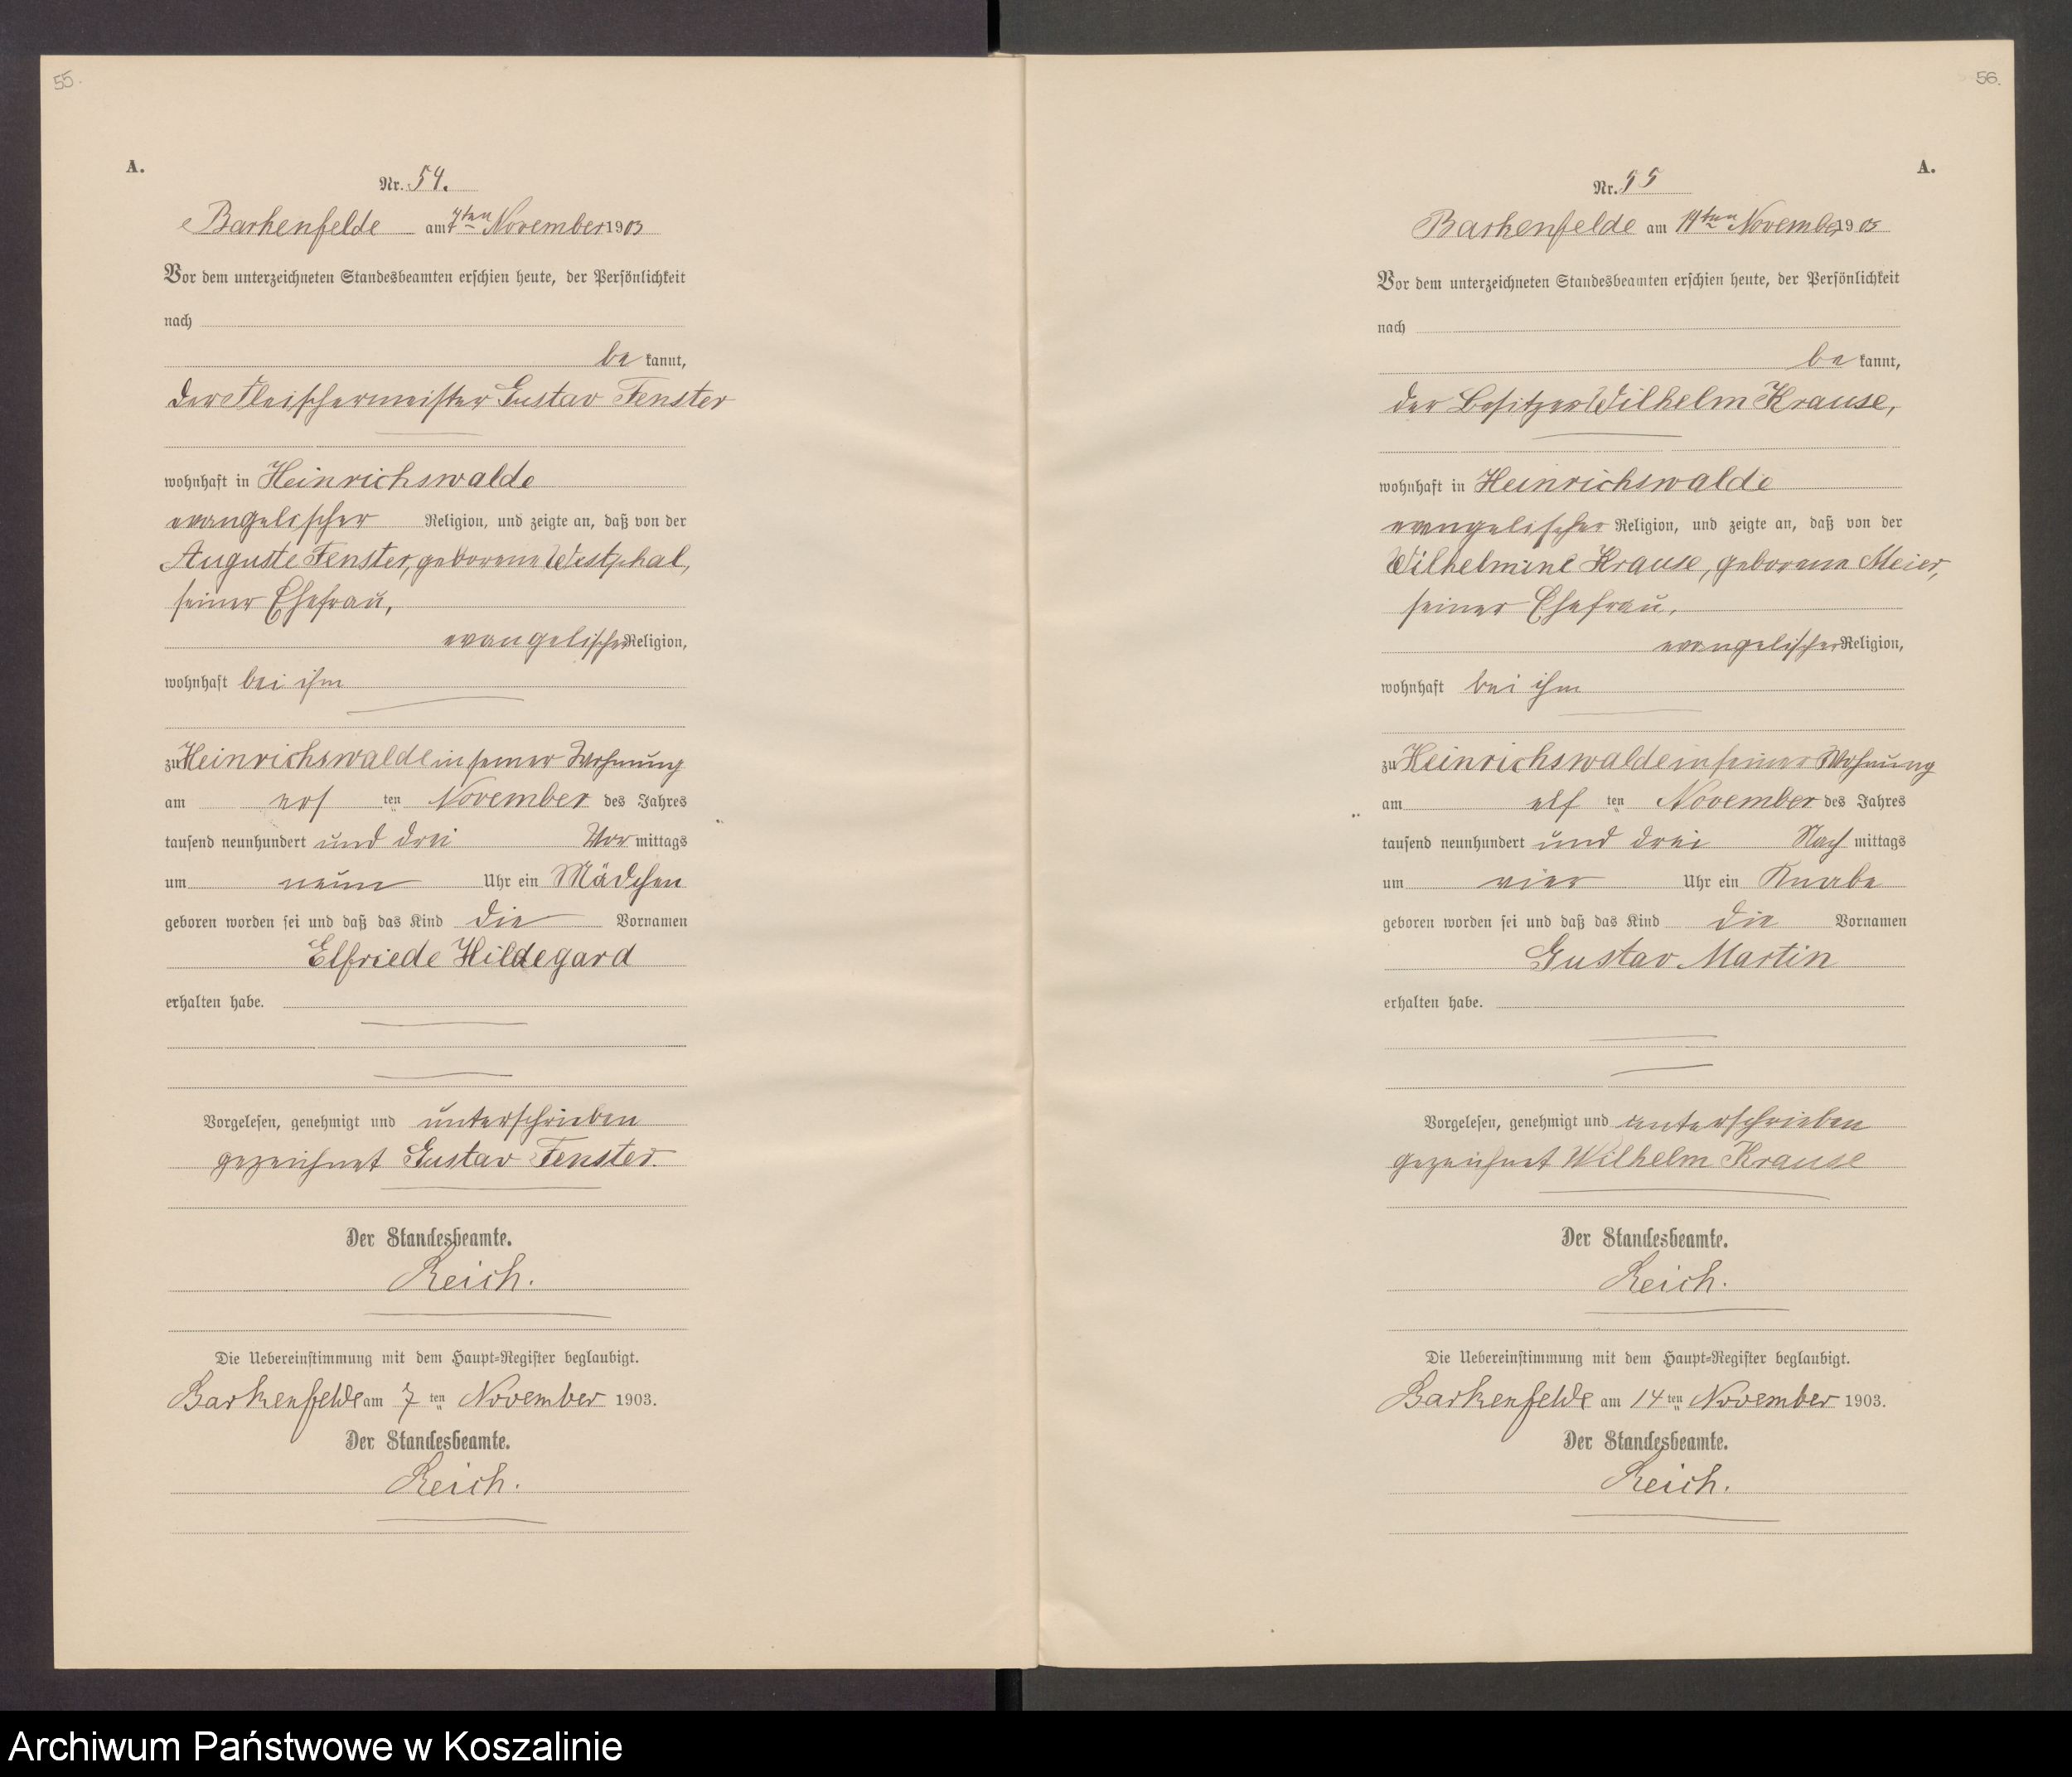 55.
A.
Nr. 54.
Barkenfelde am 7ten November 1903
Vor dem unterzeichneten Standesbeamten erschien heute, der Persönlichkeit
nach
be kannt,
der Fleischermeister Gustav Fenster
wohnhaft in Heinrichswalde
evangelischer Religion, und zeigte an, daß von der
Auguste Fenster, geborene Westphal,
seiner Ehefrau,
evangelischer Religion,
wohnhaft bei ihm
zu Heinrichswalde in seiner Wohnung
am ers ten November des Jahres
tausend neunhundert und drei Vor mittags
um neun Uhr ein Mädchen
geboren worden sei und daß das Kind die Vornamen
Elfriede Hildegard
erhalten habe.
Vorgelesen, genehmigt und unterschrieben
gezeichnet Gustav Fenster.
Der Standesbeamte.
Reich.
Die Uebereinstimmung mit dem Haupt-Register beglaubigt.
Barkenfelde am 7 ten November 1903.
Der Standesbeamte.
Reich.
56.
A.
Nr. 55
Barkenfelde am 14ten November 1903
Vor dem unterzeichneten Standesbeamten erschien heute, der Persönlichkeit
nach
be kannt,
der Besitzer Wilhelm Krause,
wohnhaft in Heinrichswalde
evangelischer Religion, und zeigte an, daß von der
Wilhelmine Krause, geborene Meier,
seiner Ehefrau,
evangelischer Religion,
wohnhaft bei ihm
zu Heinrichswalde in seiner Wohnung
am elf ten November des Jahres
tausend neunhundert und drei Nach mittags
um vier Uhr ein Knabe
geboren worden sei und daß das Kind die Vornamen
Gustav Martin
erhalten habe.
Vorgelesen, genehmigt und unterschrieben
gezeichnet Wilhelm Krause
Der Standesbeamte.
Reich.
Die Uebereinstimmung mit dem Haupt-Register beglaubigt.
Barkenfelde am 14 ten November 1903.
Der Standesbeamte.
Reich.
Archiwum Państwowe w Koszalinie